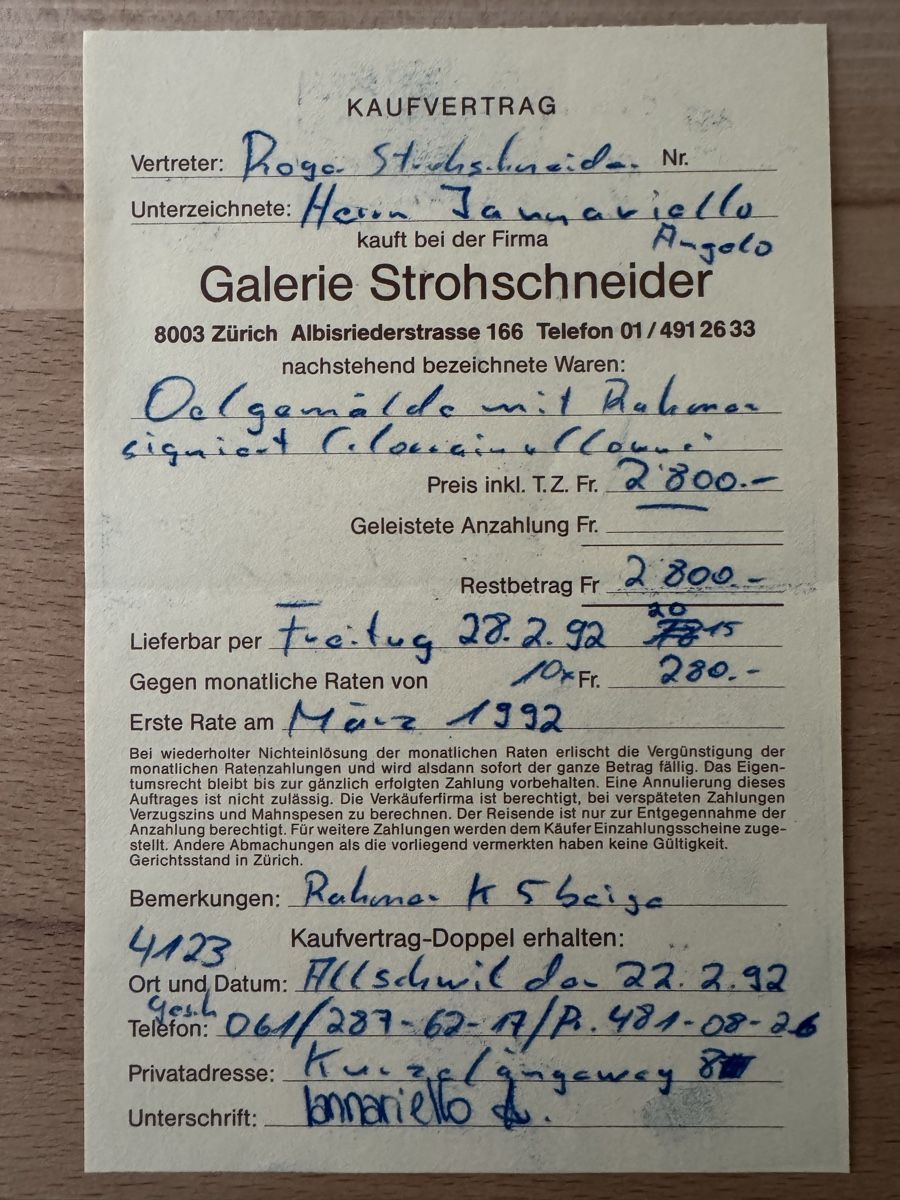 KAUFVERTRAG
Vertreter: Roger Strohschneider Nr.
Unterzeichnete: Herrn Iannariello
Angelo
kauft bei der Firma
Galerie Strohschneider
8003 Zürich Albisriederstrasse 166 Telefon 01/491 26 33
nachstehend bezeichnete Waren:
Oelgemälde mit Rahmen
signiert
Preis inkl. T.Z. Fr. 2'800.-
Geleistete Anzahlung Fr.
Restbetrag Fr 2'800.-
Lieferbar per Freitag 28.2.92 20 15
Gegen monatliche Raten von 10x Fr. 280.-
Erste Rate am März 1992
Bei wiederholter Nichteinlösung der monatlichen Raten erlischt die Vergünstigung der
monatlichen Ratenzahlungen und wird alsdann sofort der ganze Betrag fällig. Das Eigen-
tumsrecht bleibt bis zur gänzlich erfolgten Zahlung vorbehalten. Eine Annulierung dieses
Auftrages ist nicht zulässig. Die Verkäuferfirma ist berechtigt, bei verspäteten Zahlungen
Verzugszins und Mahnspesen zu berechnen. Der Reisende ist nur zur Entgegennahme der
Anzahlung berechtigt. Für weitere Zahlungen werden dem Käufer Einzahlungsscheine zuge-
stellt. Andere Abmachungen als die vorliegend vermerkten haben keine Gültigkeit.
Gerichtsstand in Zürich.
Bemerkungen: Rahmen K 5 beige
4123 Kaufvertrag-Doppel erhalten:
Ort und Datum: Allschwil den 22.2.92
Gesch
Telefon: 061/287-62-17/P. 481-08-26
Privatadresse: Kurzelängeweg 8
Unterschrift: Iannariello A.